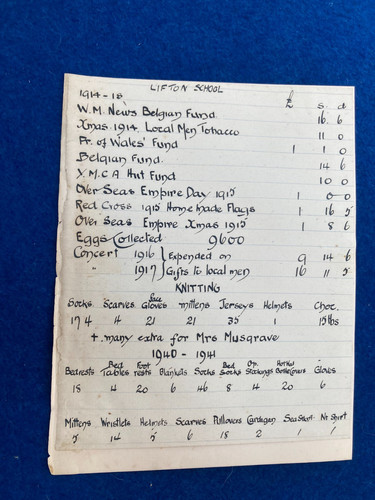 LIFTON SCHOOL
1914-18 £ s. d
W.M. News Belgian Fund 16 6
Xmas 1914 Local Men Tobacco 11 0
Pr. of Wales' Fund 1 1 0
Belgian Fund 14 6
Y.M.C.A Hut Fund 10 0
Over Seas Empire Day 1915 1 0 0
Red Cross 1915 Home Made Flags 1 16 5
Over Seas Empire Xmas 1915 1 8 6
Eggs Collected 9600
Concert 1916 } Expended on 9 14 6
" 1917 } Gifts to local men 16 11 5
KNITTING
Socks. Scarves. Gloves mittens Jerseys Helmets Choc.
174 4 21 21 35 1 15 lbs
+ many extra for Mrs Musgrave
1940 - 1941
Bedrests Bed Tables Foot rests Blankets Socks Bed Socks Op. Stockings Hot Wat Bottle Covers Gloves
18 4 20 6 46 8 4 20 6
Mittens Wristlets Helmets Scarves Pullovers Cardigan Sea Start Nt Shirt
5 14 5 6 18 2 1 1